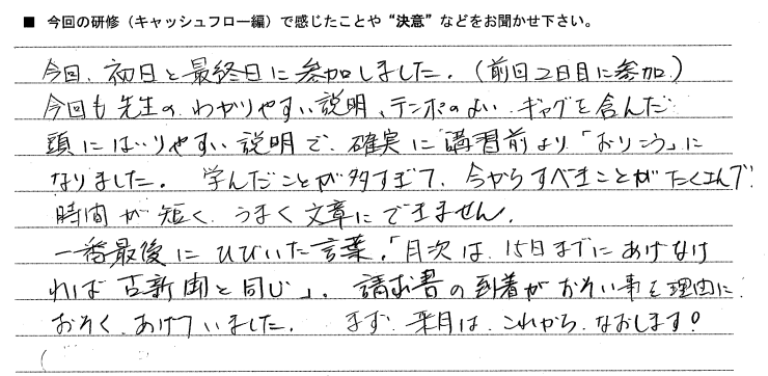 ■ 今回の研修（キャッシュフロー編）で感じたことや“決意”などをお聞かせ下さい。
今回、初日と最終日に参加しました。（前回2日目に参加）
今回も先生の、わかりやすい説明、テンポのよい、ギャグを含んだ
頭にはいりやすい説明で、確実に講習前より「おりこう」に
なりました。 学んだことが多すぎて、今からすべきことがたくさんで
時間が短く、うまく文章にできません。
一番最後にひびいた言葉。「月次は、15日までにあげなけ
れば古新聞と同じ」。請求書の到着がおそい事を理由に
おそく、あげていました。 まず、来月は、これから、なおします！